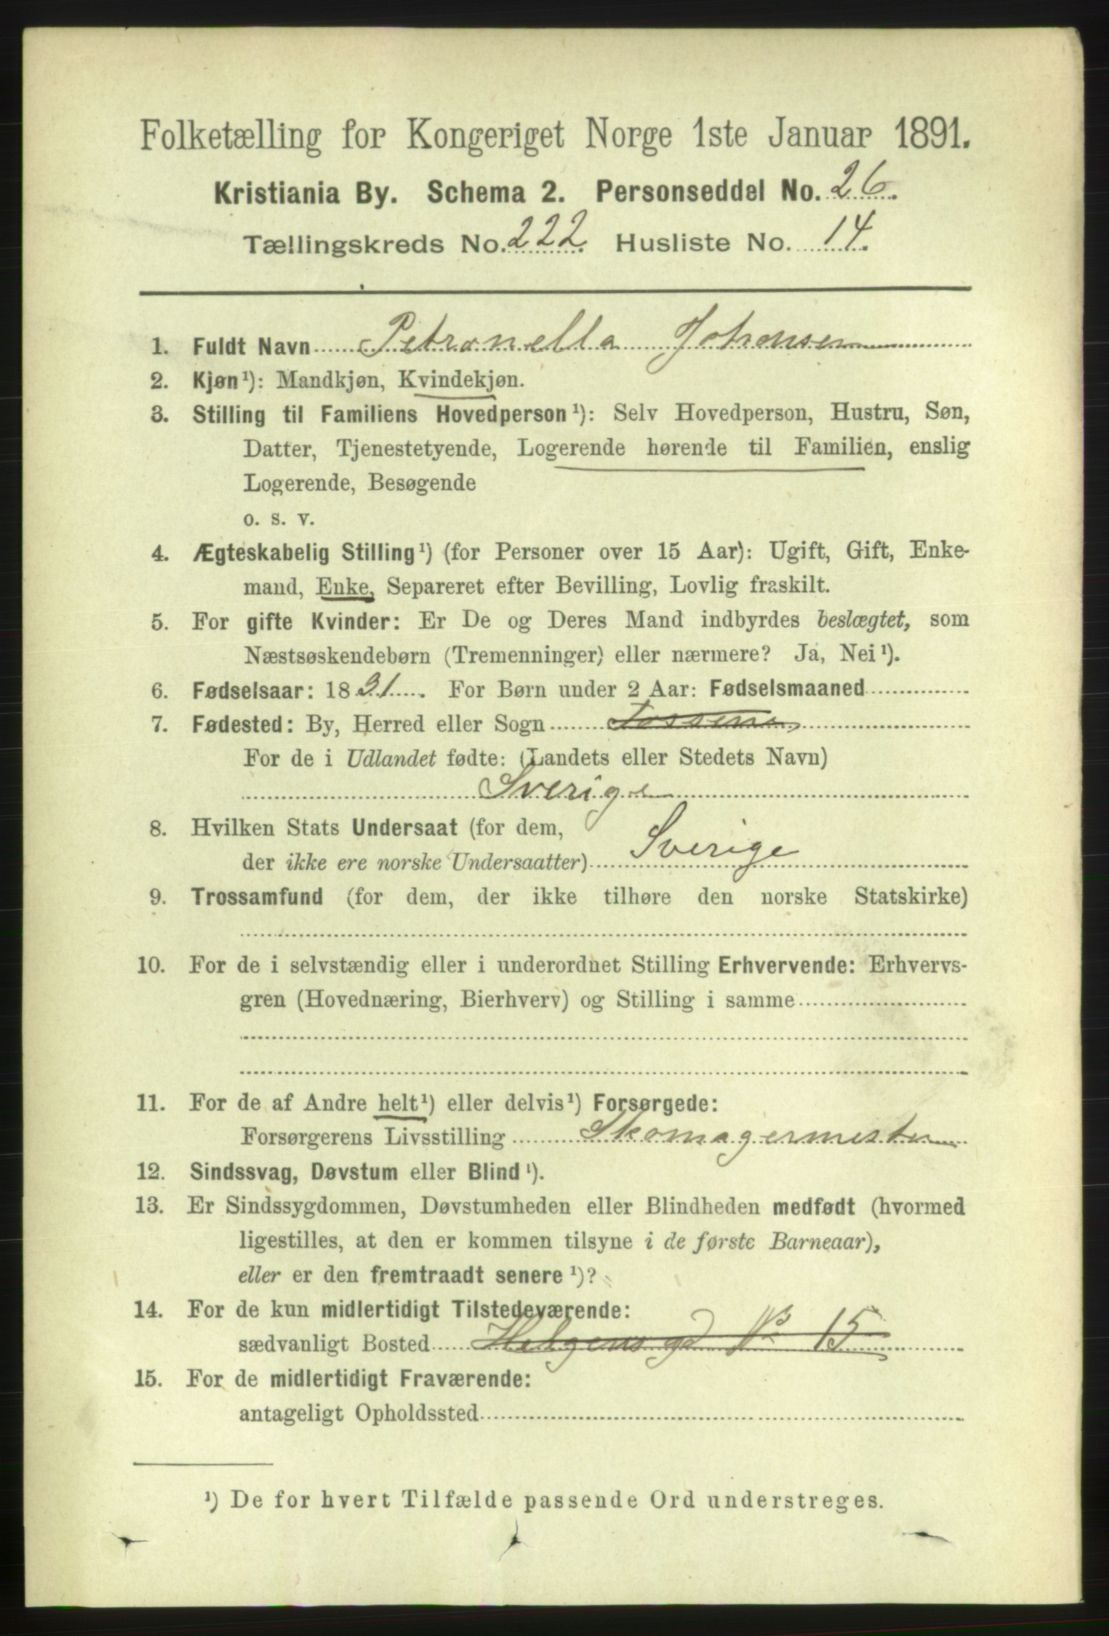 Folketælling for Kongeriget Norge 1ste Januar 1891.
Kristiania By. Schema 2. Personseddel No. 26.
Tællingskreds No. 222. Husliste No. 14.
1. Fuldt Navn Petronella Johansen
2. Kjøn¹): Mandkjøn, Kvindekjøn.
3. Stilling til Familiens Hovedperson¹): Selv Hovedperson, Hustru, Søn,
Datter, Tjenestetyende, Logerende hørende til Familien, enslig
Logerende, Besøgende
o. s. v.
4. Ægteskabelig Stilling¹) (for Personer over 15 Aar): Ugift, Gift, Enke-
mand, Enke, Separeret efter Bevilling, Lovlig fraskilt.
5. For gifte Kvinder: Er De og Deres Mand indbyrdes beslægtet, som
Næstsøskendebørn (Tremenninger) eller nærmere? Ja, Nei¹).
6. Fødselsaar: 1831. For Børn under 2 Aar: Fødselsmaaned
7. Fødested: By, Herred eller Sogn
For de i Udlandet fødte: (Landets eller Stedets Navn)
Sverige
8. Hvilken Stats Undersaat (for dem,
der ikke ere norske Undersaatter) Sverige
9. Trossamfund (for dem, der ikke tilhøre den norske Statskirke)
10. For de i selvstændig eller i underordnet Stilling Erhvervende: Erhvervs-
gren (Hovednæring, Bierhverv) og Stilling i samme
11. For de af Andre helt¹) eller delvis¹) Forsørgede:
Forsørgerens Livsstilling Skomagermester
12. Sindssvag, Døvstum eller Blind¹).
13. Er Sindssygdommen, Døvstumheden eller Blindheden medfødt (hvormed
ligestilles, at den er kommen tilsyne i de første Barneaar),
eller er den fremtraadt senere¹)?
14. For de kun midlertidigt Tilstedeværende:
sædvanligt Bosted Helgens gd No 15
15. For de midlertidigt Fraværende:
antageligt Opholdssted
¹) De for hvert Tilfælde passende Ord understreges.